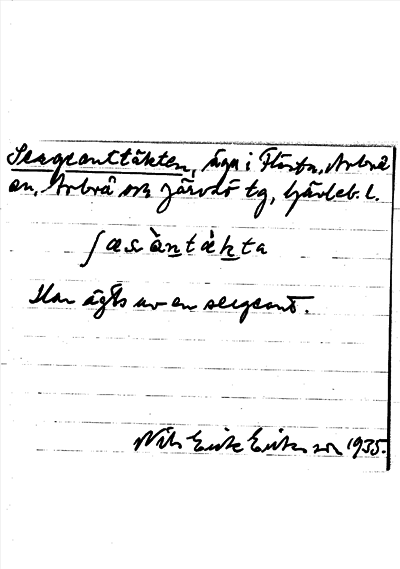 Sergeanttäkten, äga i Flästa, Arbrå
sn, Arbrå och Järvsö tg, Gävleb. l.
ʃasàntàkta
Har ägts av en sergeant.
Nils Erik Eriksson 1935.